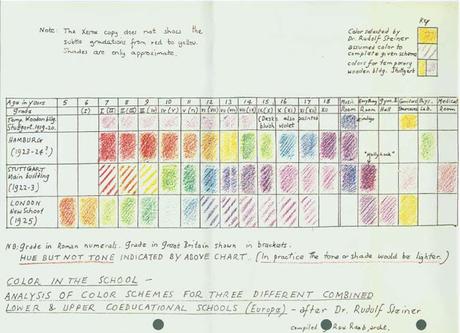 Note: The Xerox copy does not show the
subtle gradations from red to yellow.
Shades are only approximate.
Key
Color selected by
Dr. Rudolf Steiner
assumed color to
complete given scheme
colors for temporary
wooden bldg. Stuttgart
Age in years 5 6 7 8 9 10 11 12 13 14 15 16 17 18 Music Eurythmy Gym & Phys. Medical
Grade (I) I (II) II (III) III (IV) IV (V) V (VI) XI XII Room Room Hall Lab. Room
Temp. Wooden bldg.
Stuttgart. 1919-20. (Desks also painted
violet indigo
HAMBURG
(1922-24?)
STUTTGART
Main building
(1922-3)
LONDON
New School
(1925)
NB: Grade in Roman numerals. Grade in Great Britain shown in brackets.
HUE BUT NOT TONE INDICATED BY ABOVE CHART.. (In practice the tone or shade would be lighter.)
COLOR IN THE SCHOOL —
ANALYSIS OF COLOR SCHEMES FOR THREE DIFFERENT COMBINED
LOWER & UPPER COEDUCATIONAL SCHOOLS (Europe) - after Dr. Rudolf Steiner
compiled